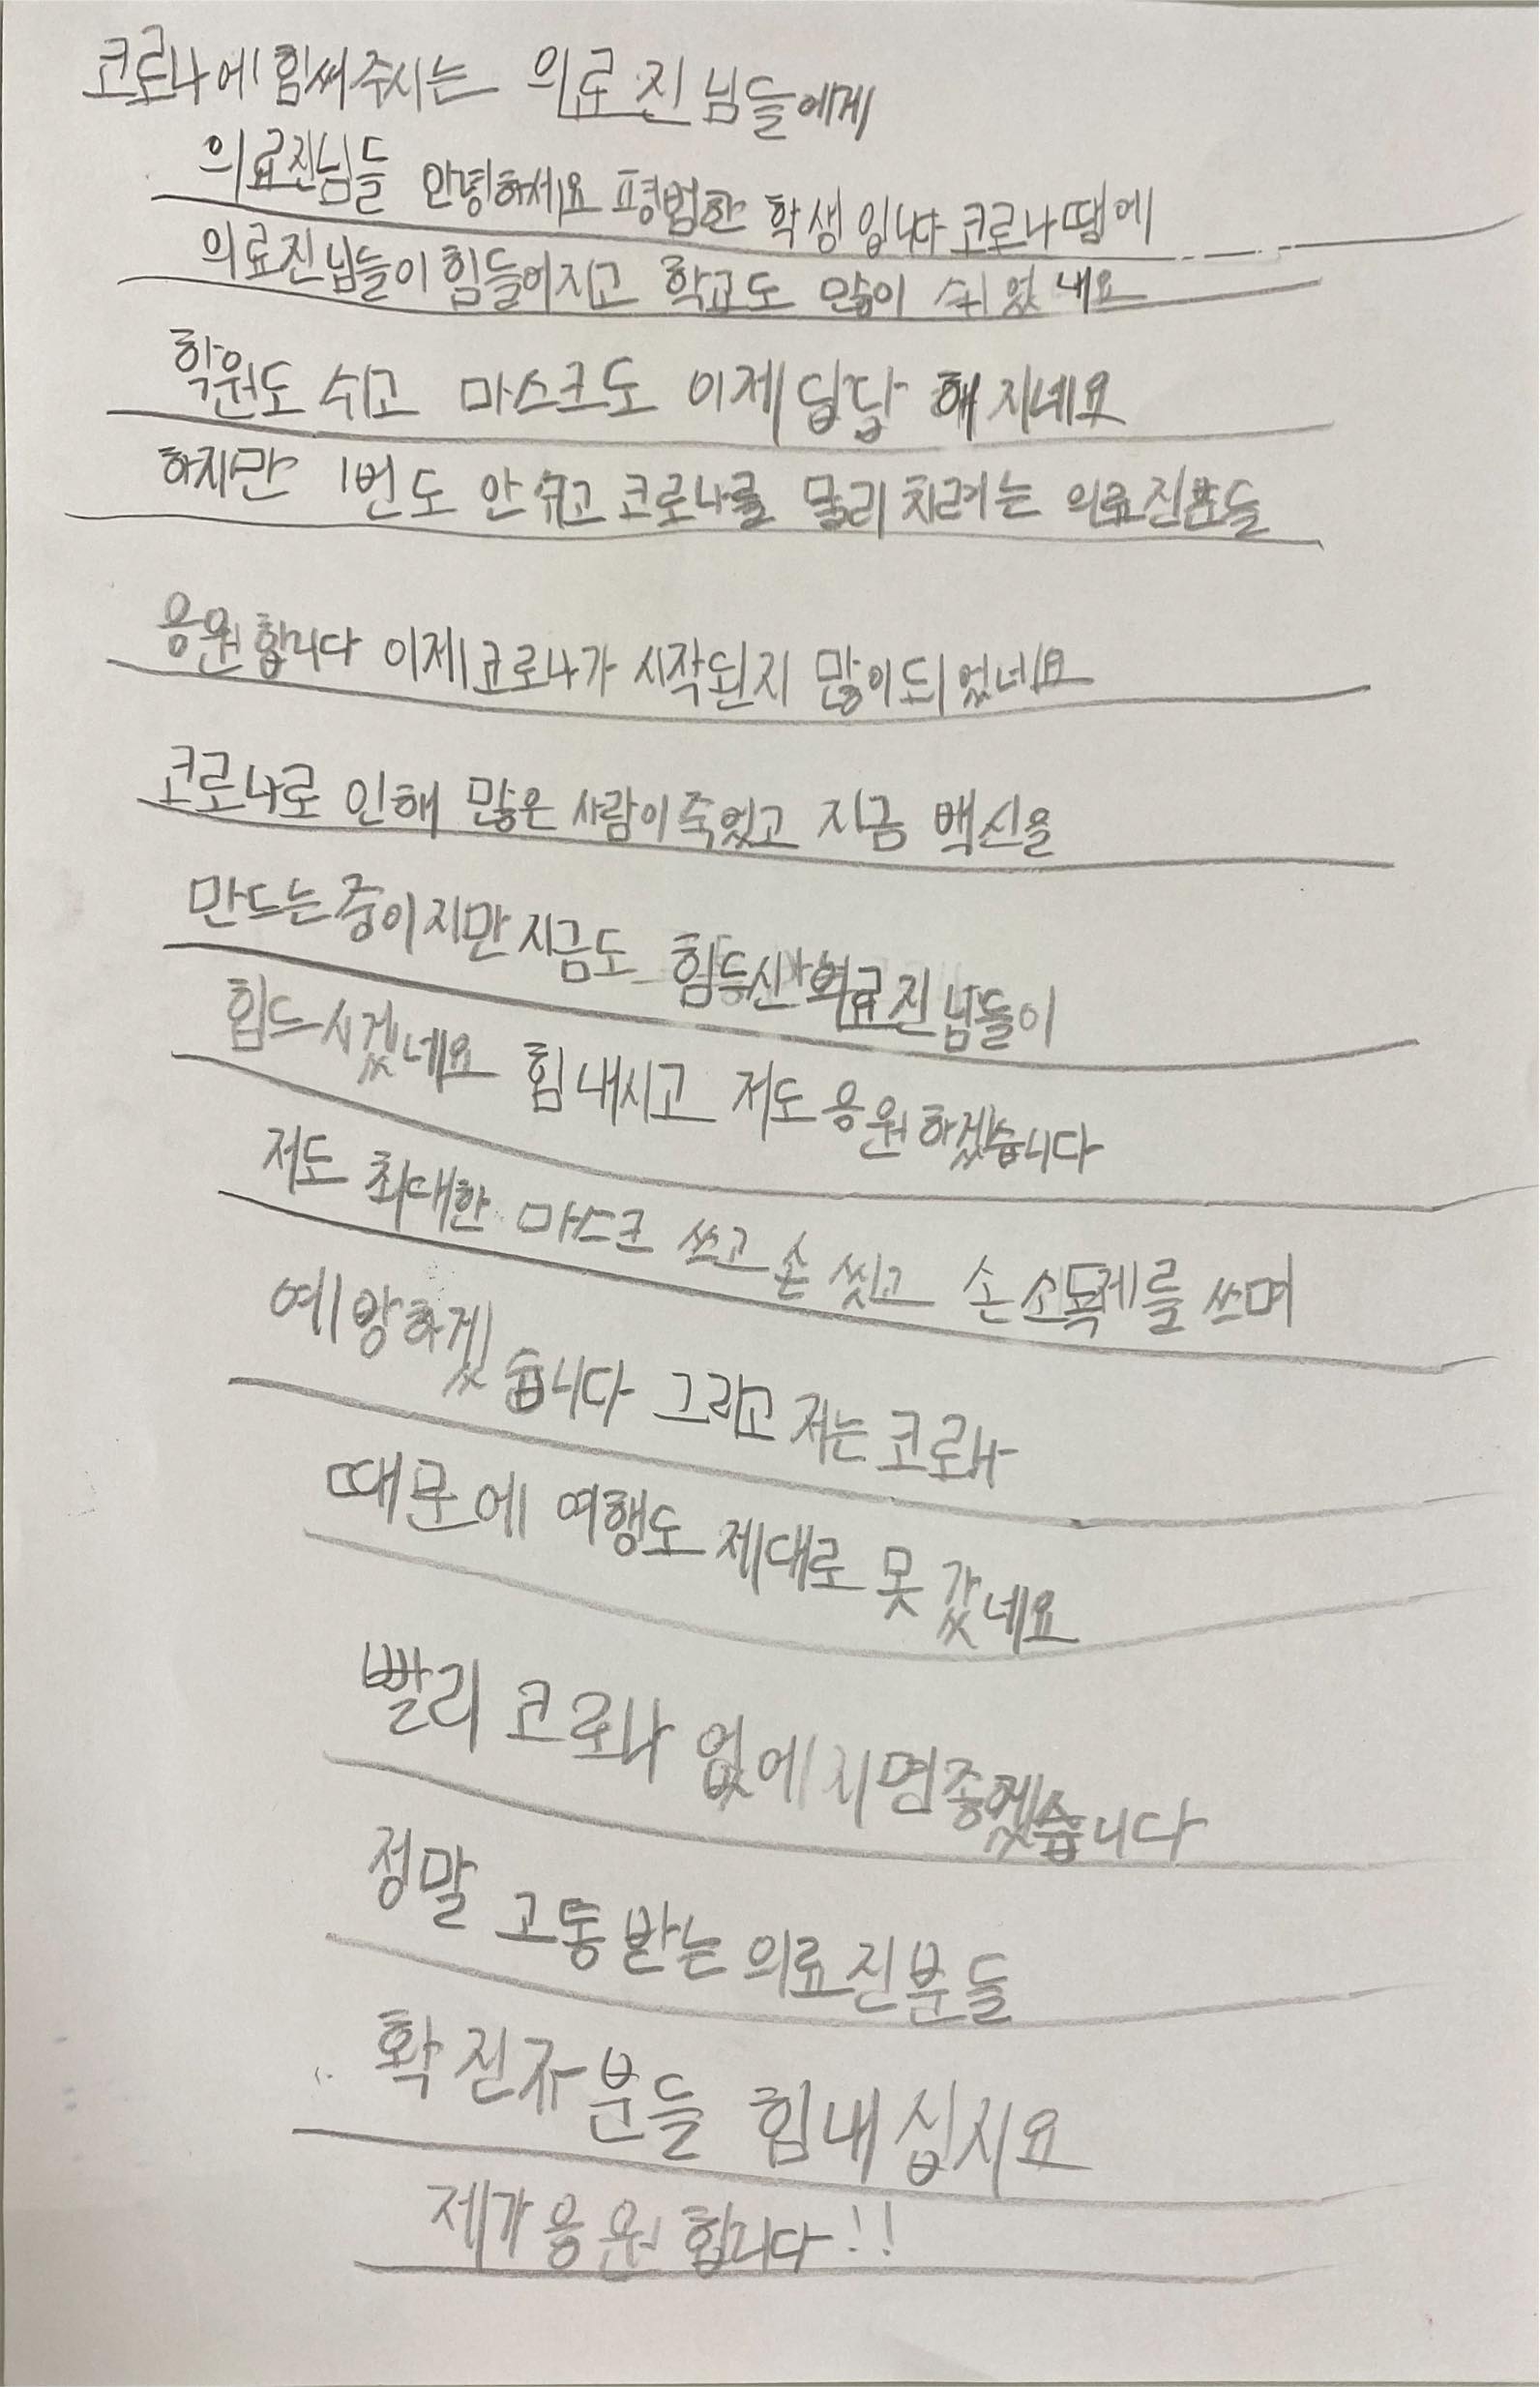 코로나에 힘써주시는 의료진님들에게
의료진님들 안녕하세요 평범한 학생입니다 코로나땜에
의료진님들이 힘들어지고 학교도 많이 쉬었내요
학원도 쉬고 마스크도 이제 답답해지네요
하지만 1번도 안쉬고 코로나를 물리치려는 의료진분들
응원합니다 이제 코로나가 시작된지 많이 되었네요
코로나로 인해 많은 사람이 죽었고 지금 백신을
만드는중이지만 지금도 힘드신 의료진님들이
힘드시겠네요 힘내시고 저도 응원하겠습니다
저도 최대한 마스크 쓰고 손 씻고 손소독제를 쓰며
예방하겠습니다 그리고 저는 코로나
때문에 여행도 제대로 못 갔네요
빨리 코로나 없에지면좋겠습니다
정말 고통받는 의료진분들
확진자분들 힘내십시요
제가 응원합니다!!